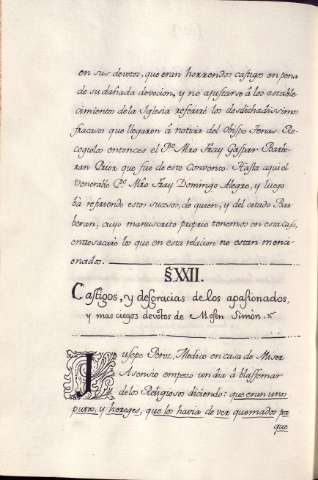 en sus devotos, que eran horrendos castigos en pena
de su dañada devocion, y no ajustarse á los estable-
cimientos de la Iglesia referiré los desdichadissimos
fracasos que llegaron á noticia del Obispo Senas. Re-
cogiolos entonces el Pᵉ. Mro Fray Gaspar Barbe-
ran Prior que fue de este Convento. Hasta aqui el
Venerable Pᵉ. Mro Fray Domingo Alegre, y luego
bá refiriendo estos sucesos, de quien, y del citado Bar-
beran, cuyo manuscrito proprio tenemos en esta casa,
entresacaré los que en esta relacion no estan menci-
onados.
§XXII.
Castigos, y desgracias de los apasionados,
y mas ciegos devotos de Mosen Simòn.
Jusepe Perez, Medico en casa de Miser
Asensio empezo un dia á blasfemar
de los Religiosos diciendo: que eran unos
putos, y hereges, que los havia de ver quemados por
que